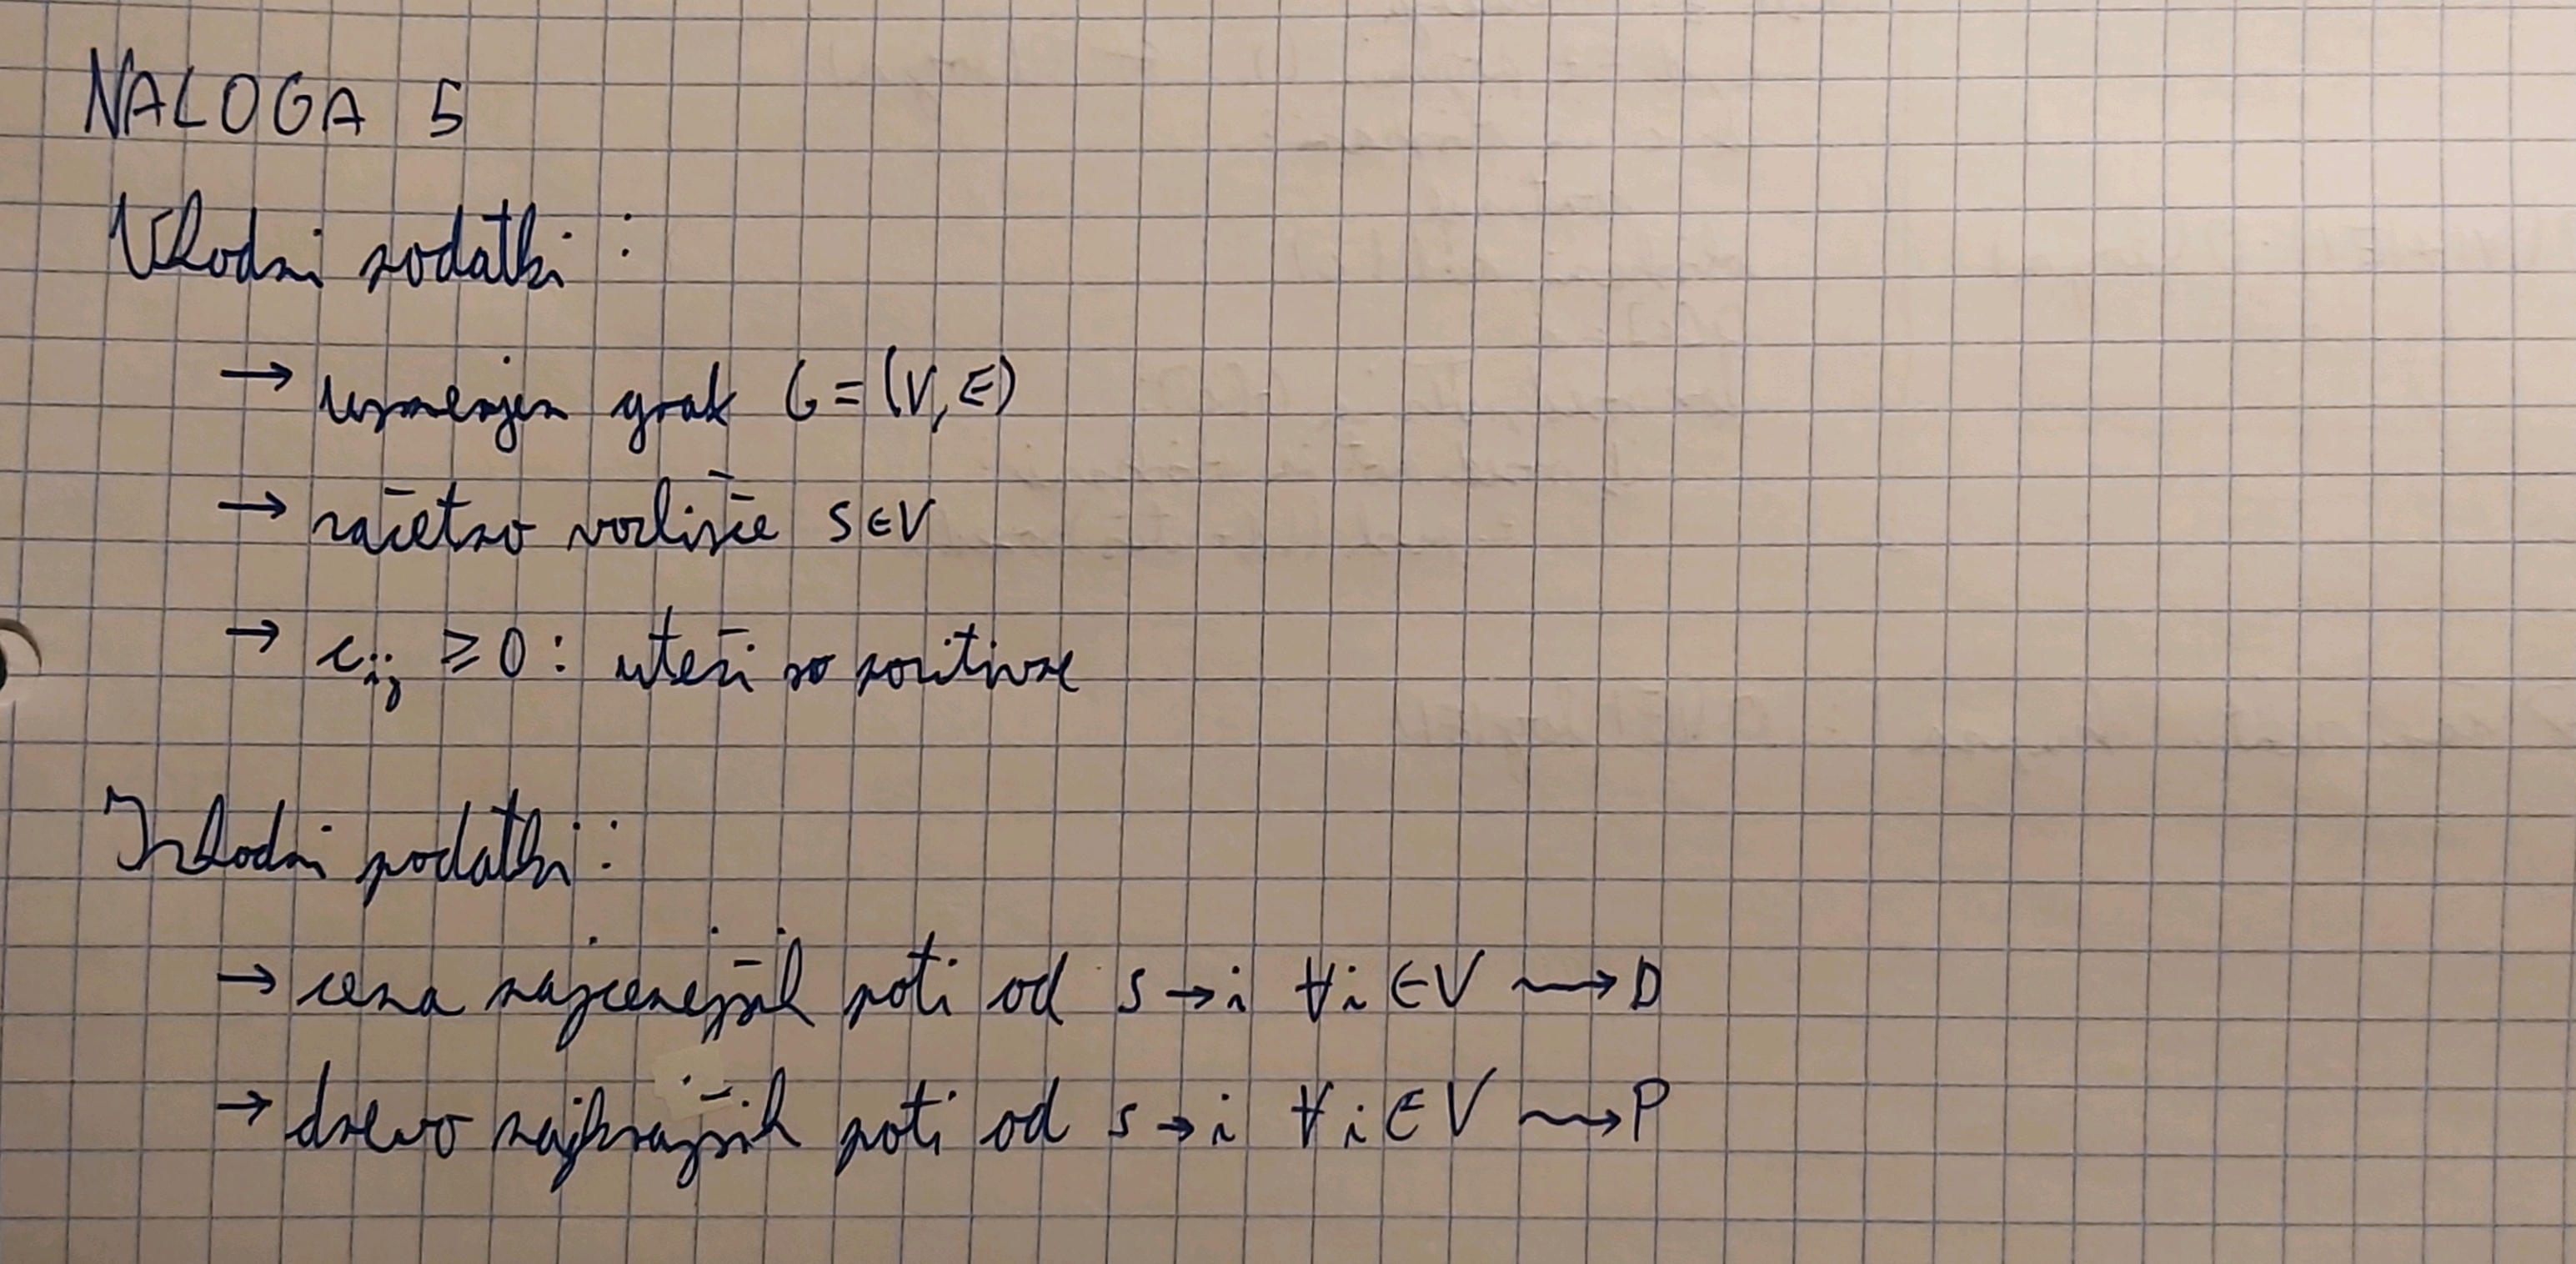 NALOGA 5
Vhodni podatki :
→ usmerjen graf G = (V, E)
→ začetno vozlišče s ∈ V
→ c_ij ≥ 0 : uteži so pozitivne
Izhodni podatki :
→ cena najcenejših poti od s → i ∀i ∈ V ⇝ D
→ drevo najkrajših poti od s → i ∀i ∈ V ⇝ P